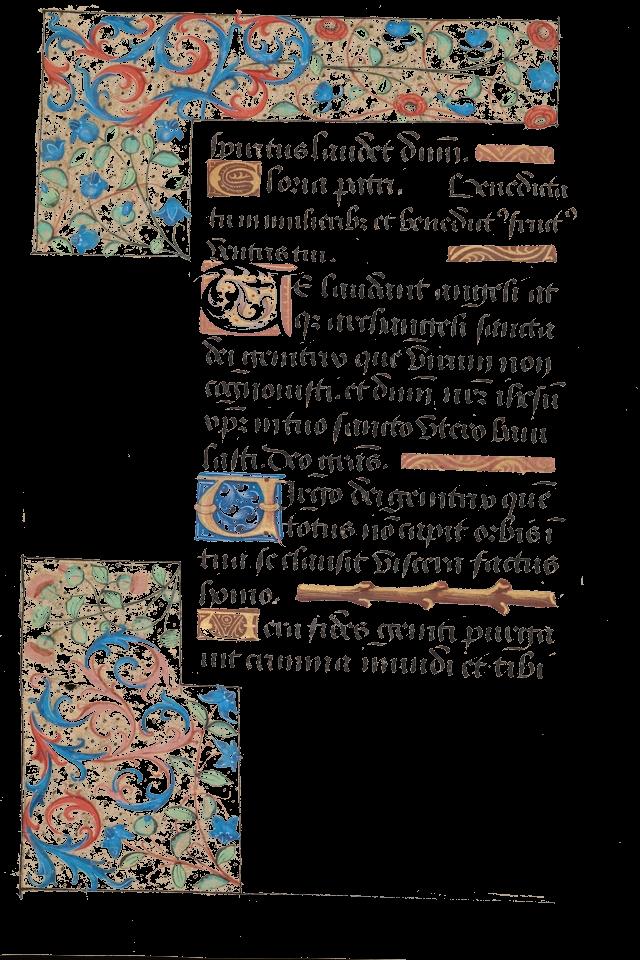 spiritus laudet dnm̄.
Gloria patri. Benedicta
tu in mulieribꝰ et benedict⁹ fruct⁹
ventris tui.
TE laudant angeli at
qꝫ archangeli sancta
dei genitrix que virum non
cognouisti. et dnm̄ nr̄m ihesū
xp̄ꝫ in tuo sancto vtero baiu
lasti. Deo grās.
Uirgo dei genitrix quē
totus nō capit orbis ī
tua se clausit viscera factus
homo.
Uera fides geniti purga
uit crimina mundi et tibi